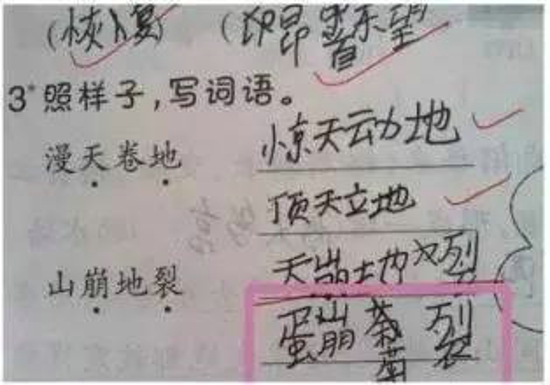 (恢复) (印昂首东望
3*照样子,写词语。
漫天卷地 惊天动地
顶天立地
山崩地裂 天崩地裂
蛋崩菊裂